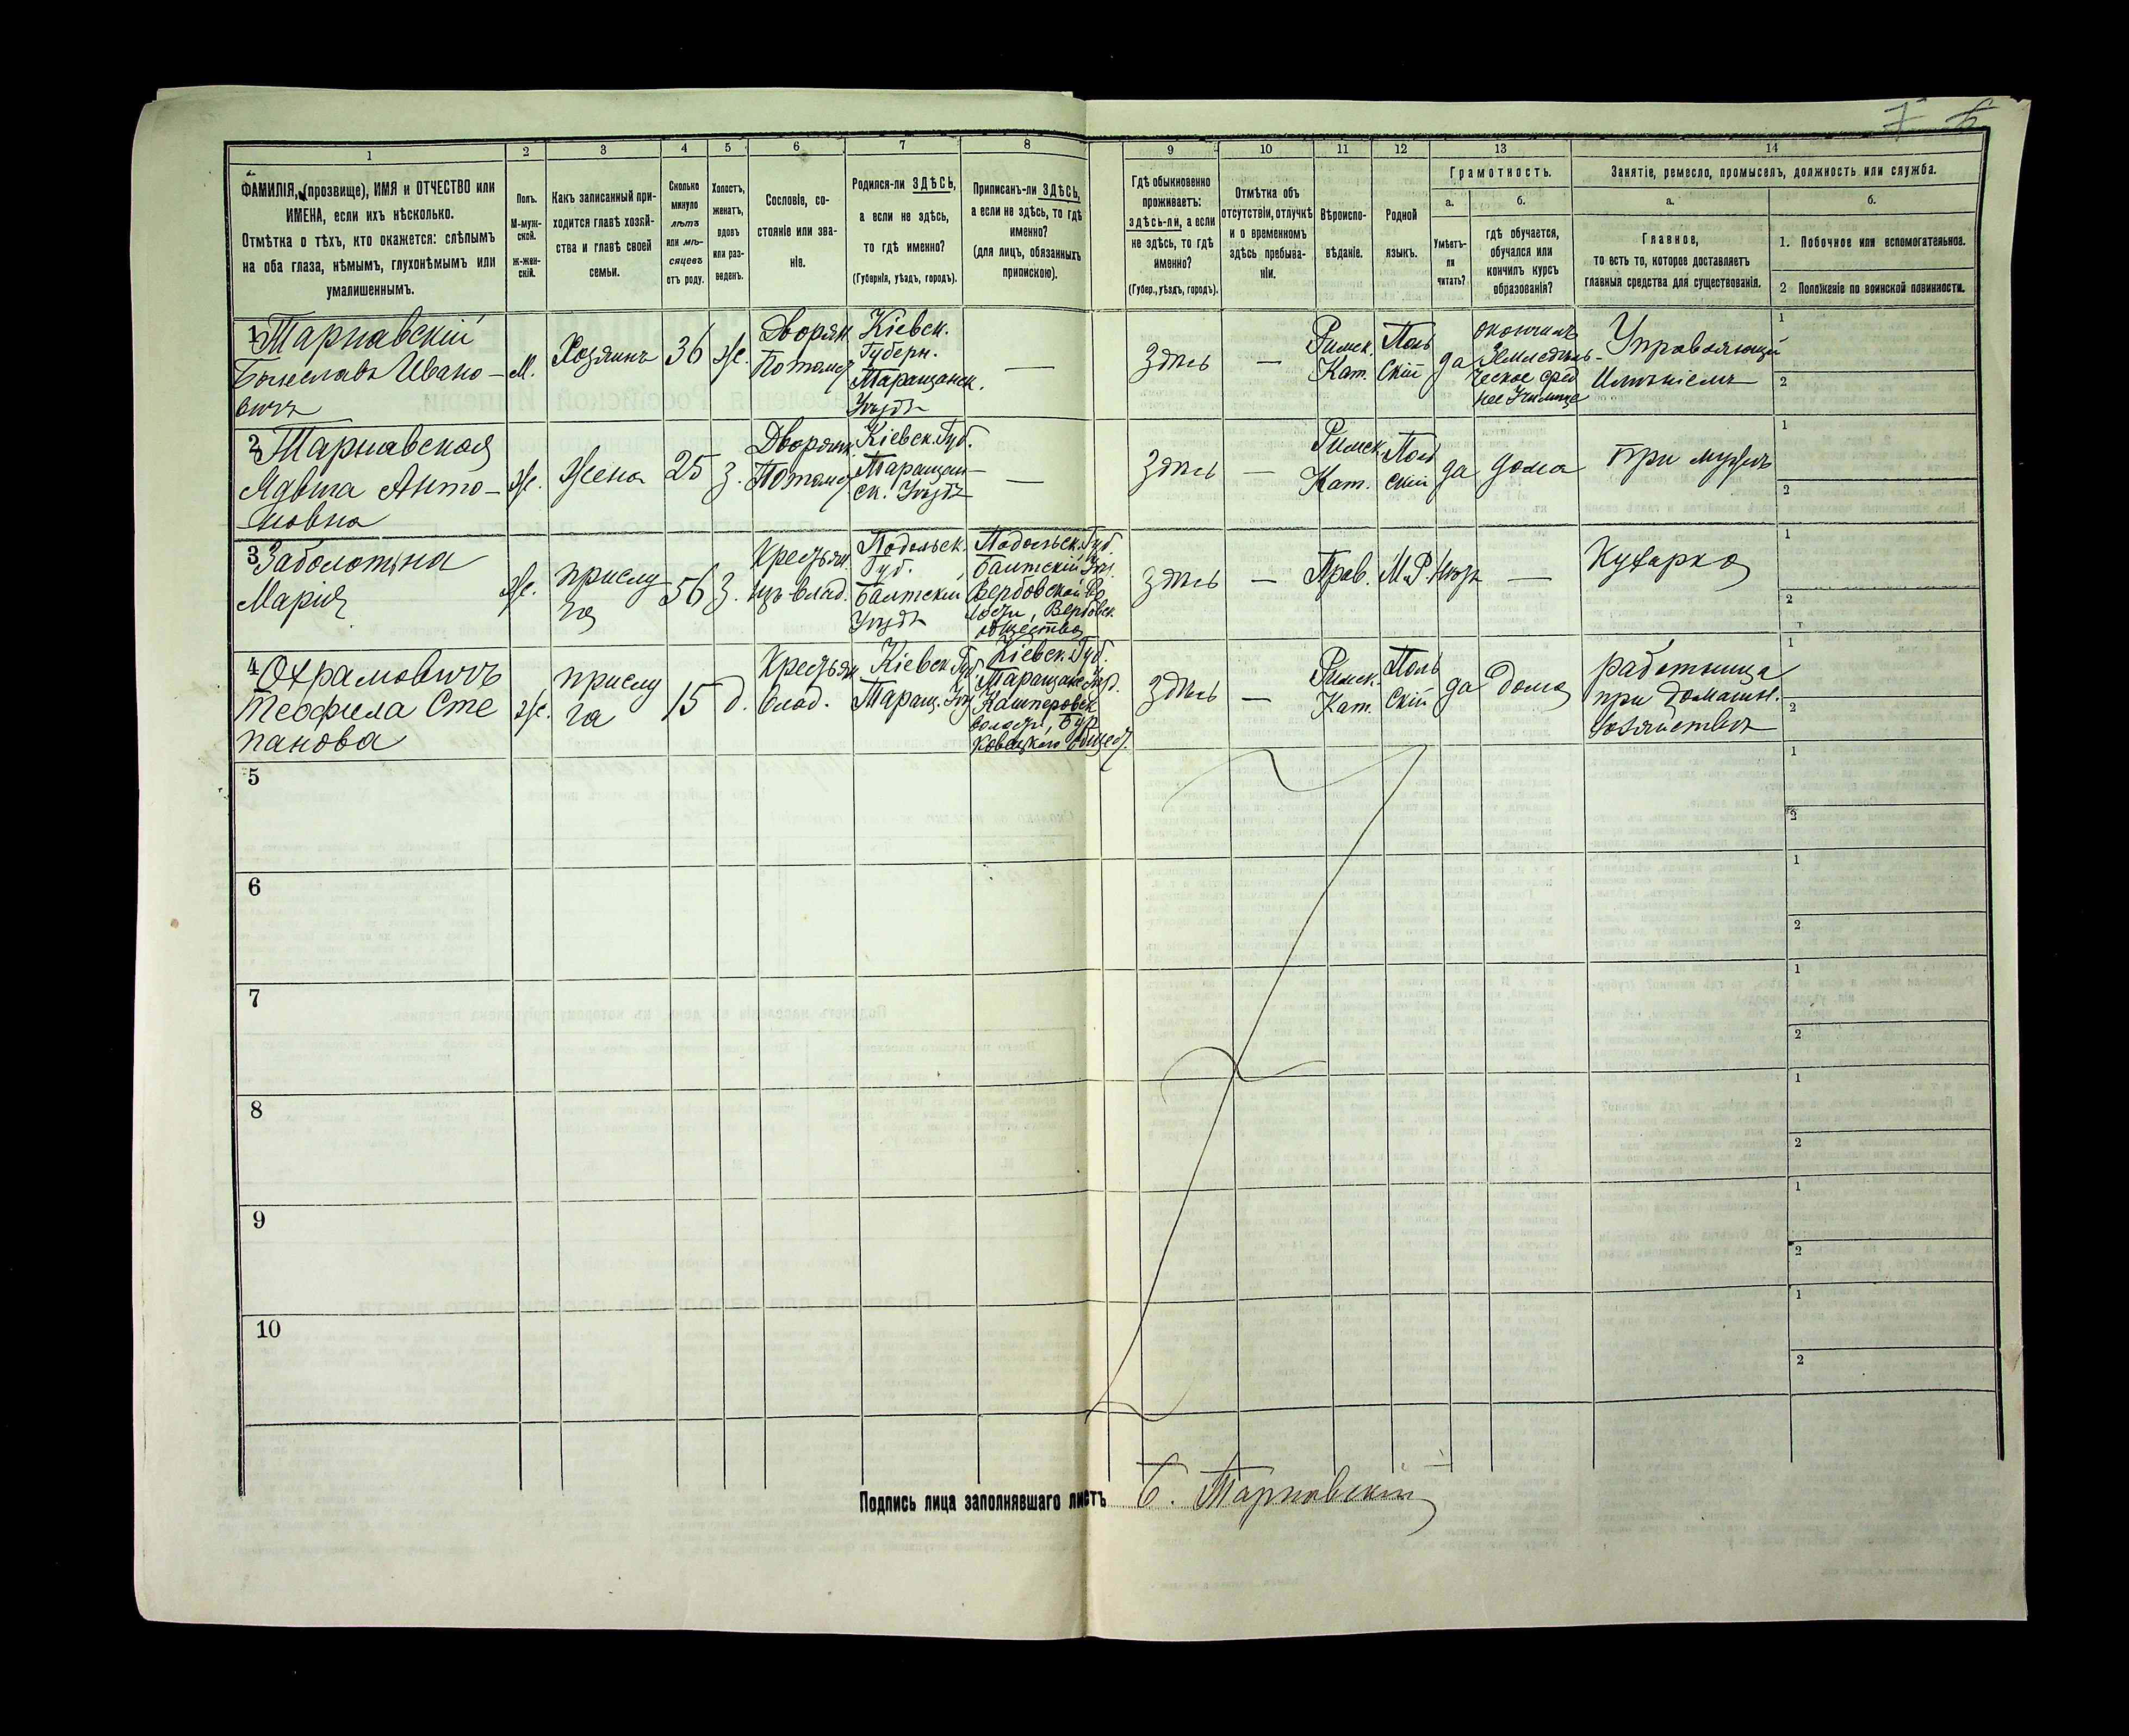 7 6
1 2 3 4 5 6 7 8 9 10 11 12 13 14
ФАМИЛІЯ, (прозвище), ИМЯ и ОТЧЕСТВО или
ИМЕНА, если ихъ нѣсколько.
Отмѣтка о тѣхъ, кто окажется: слѣпымъ
на оба глаза, нѣмымъ, глухонѣмымъ или
умалишеннымъ.
Полъ.
М-муж-
ской.
Ж-жен-
скій.
Какъ записанный при-
ходится главѣ хозяй-
ства и главѣ своей
семьи.
Сколько
минуло
лѣтъ
или мѣ-
сяцевъ
отъ роду.
Холостъ,
женатъ,
вдовъ
или раз-
веденъ.
Сословіе, со-
стояніе или зва-
ніе.
Родился-ли ЗДѢСЬ,
а если не здѣсь,
то гдѣ именно?
(Губернія, уѣздъ, городъ).
Приписанъ-ли ЗДѢСЬ,
а если не здѣсь, то гдѣ
именно?
(для лицъ, обязанныхъ
припискою).
Гдѣ обыкновенно
проживаетъ:
здѣсь-ли, а если
не здѣсь, то гдѣ
именно?
(Губер., уѣздъ, городъ).
Отмѣтка объ
отсутствіи, отлучкѣ
и о временномъ
здѣсь пребыва-
ніи.
Вѣроиспо-
вѣданіе.
Родной
языкъ.
Грамотность.
а.
Умѣетъ-
ли
читать?
б.
гдѣ обучается,
обучался или
кончилъ курсъ
образованія?
Занятіе, ремесло, промыселъ, должность или служба.
а.
Главное,
то есть то, которое доставляетъ
главныя средства для существованія.
б.
1. Побочное или вспомогательное.
2 Положеніе по воинской повинности.
1 Тарнавскій
Болеславъ Ивано-
вичъ
М.
Хозяинъ
36
Ж.
Дворян.
Потомст
Кіевск.
Губерн.
Таращанск.
Уѣздъ
—
Здѣсь
—
Римск.
Кат.
Поль
скій
да
окончилъ
Земледѣль-
ческое сред
нее Училище
Управляющій
Имѣніемъ
1
2
2 Тарнавская
Ядвига Анто-
новна
Ж.
Жена
25
З.
Дворянк.
Потомст
Кіевск. Губ.
Таращан-
ск. Уѣздъ
—
Здѣсь
—
Римск.
Кат.
Пол
скій
да
дома
При мужѣ
1
2
3 Заболотьна
Марія
Ж.
прислу
га
56
З.
Крестьян.
изъ влад.
Подольск.
Губ.
Балтскій
Уѣздъ
Подольск. Губ.
Балтскій Уѣз.
Вербовской Во
лости, Вербовск.
общества
здѣсь
—
Прав.
М.Р.
Нѣтъ
—
Кухарка
1
2
4 Охрамовичъ
Теофила Сте
панова
Ж.
прислу
га
15
д.
Крестьян
влад.
Кіевск. Губ.
Таращ. Уѣз
Кіевск. Губ.
Таращанс. Уѣз.
Кашперовск
волости,
общест.
здѣсь
—
Римск.
Кат.
Поль
скій
да
дома
работница
при домашн.
хозяйствѣ
1
2
5
1
2
6
1
2
7
1
2
8
1
2
9
1
2
10
1
2
Подпись лица заполнявшаго листъ Б. Тарнавскій